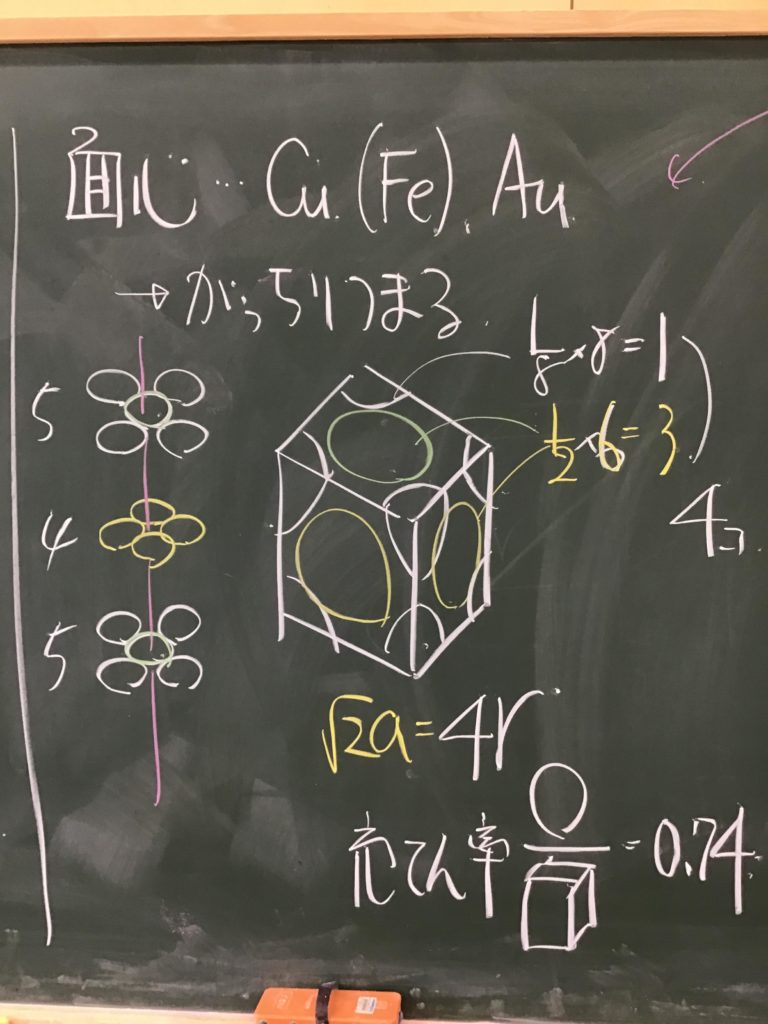 面心… Cu. (Fe), Au
→ がっちりつまる.
1/8 × 8 = 1
1/2 × 6 = 3
4コ.
5
4
5
√2a = 4r
充てん率 = 0.74.